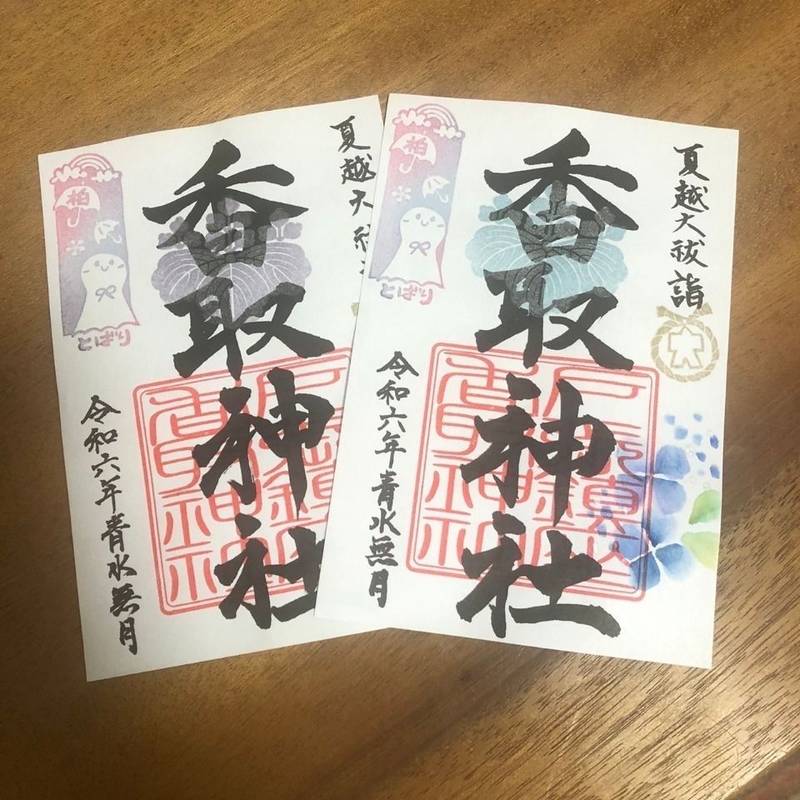 夏越大
香取神社
令和六年青水無月
柏
とばり
夏越大祓詣
香取神社
令和六年青水無月
柏
とばり